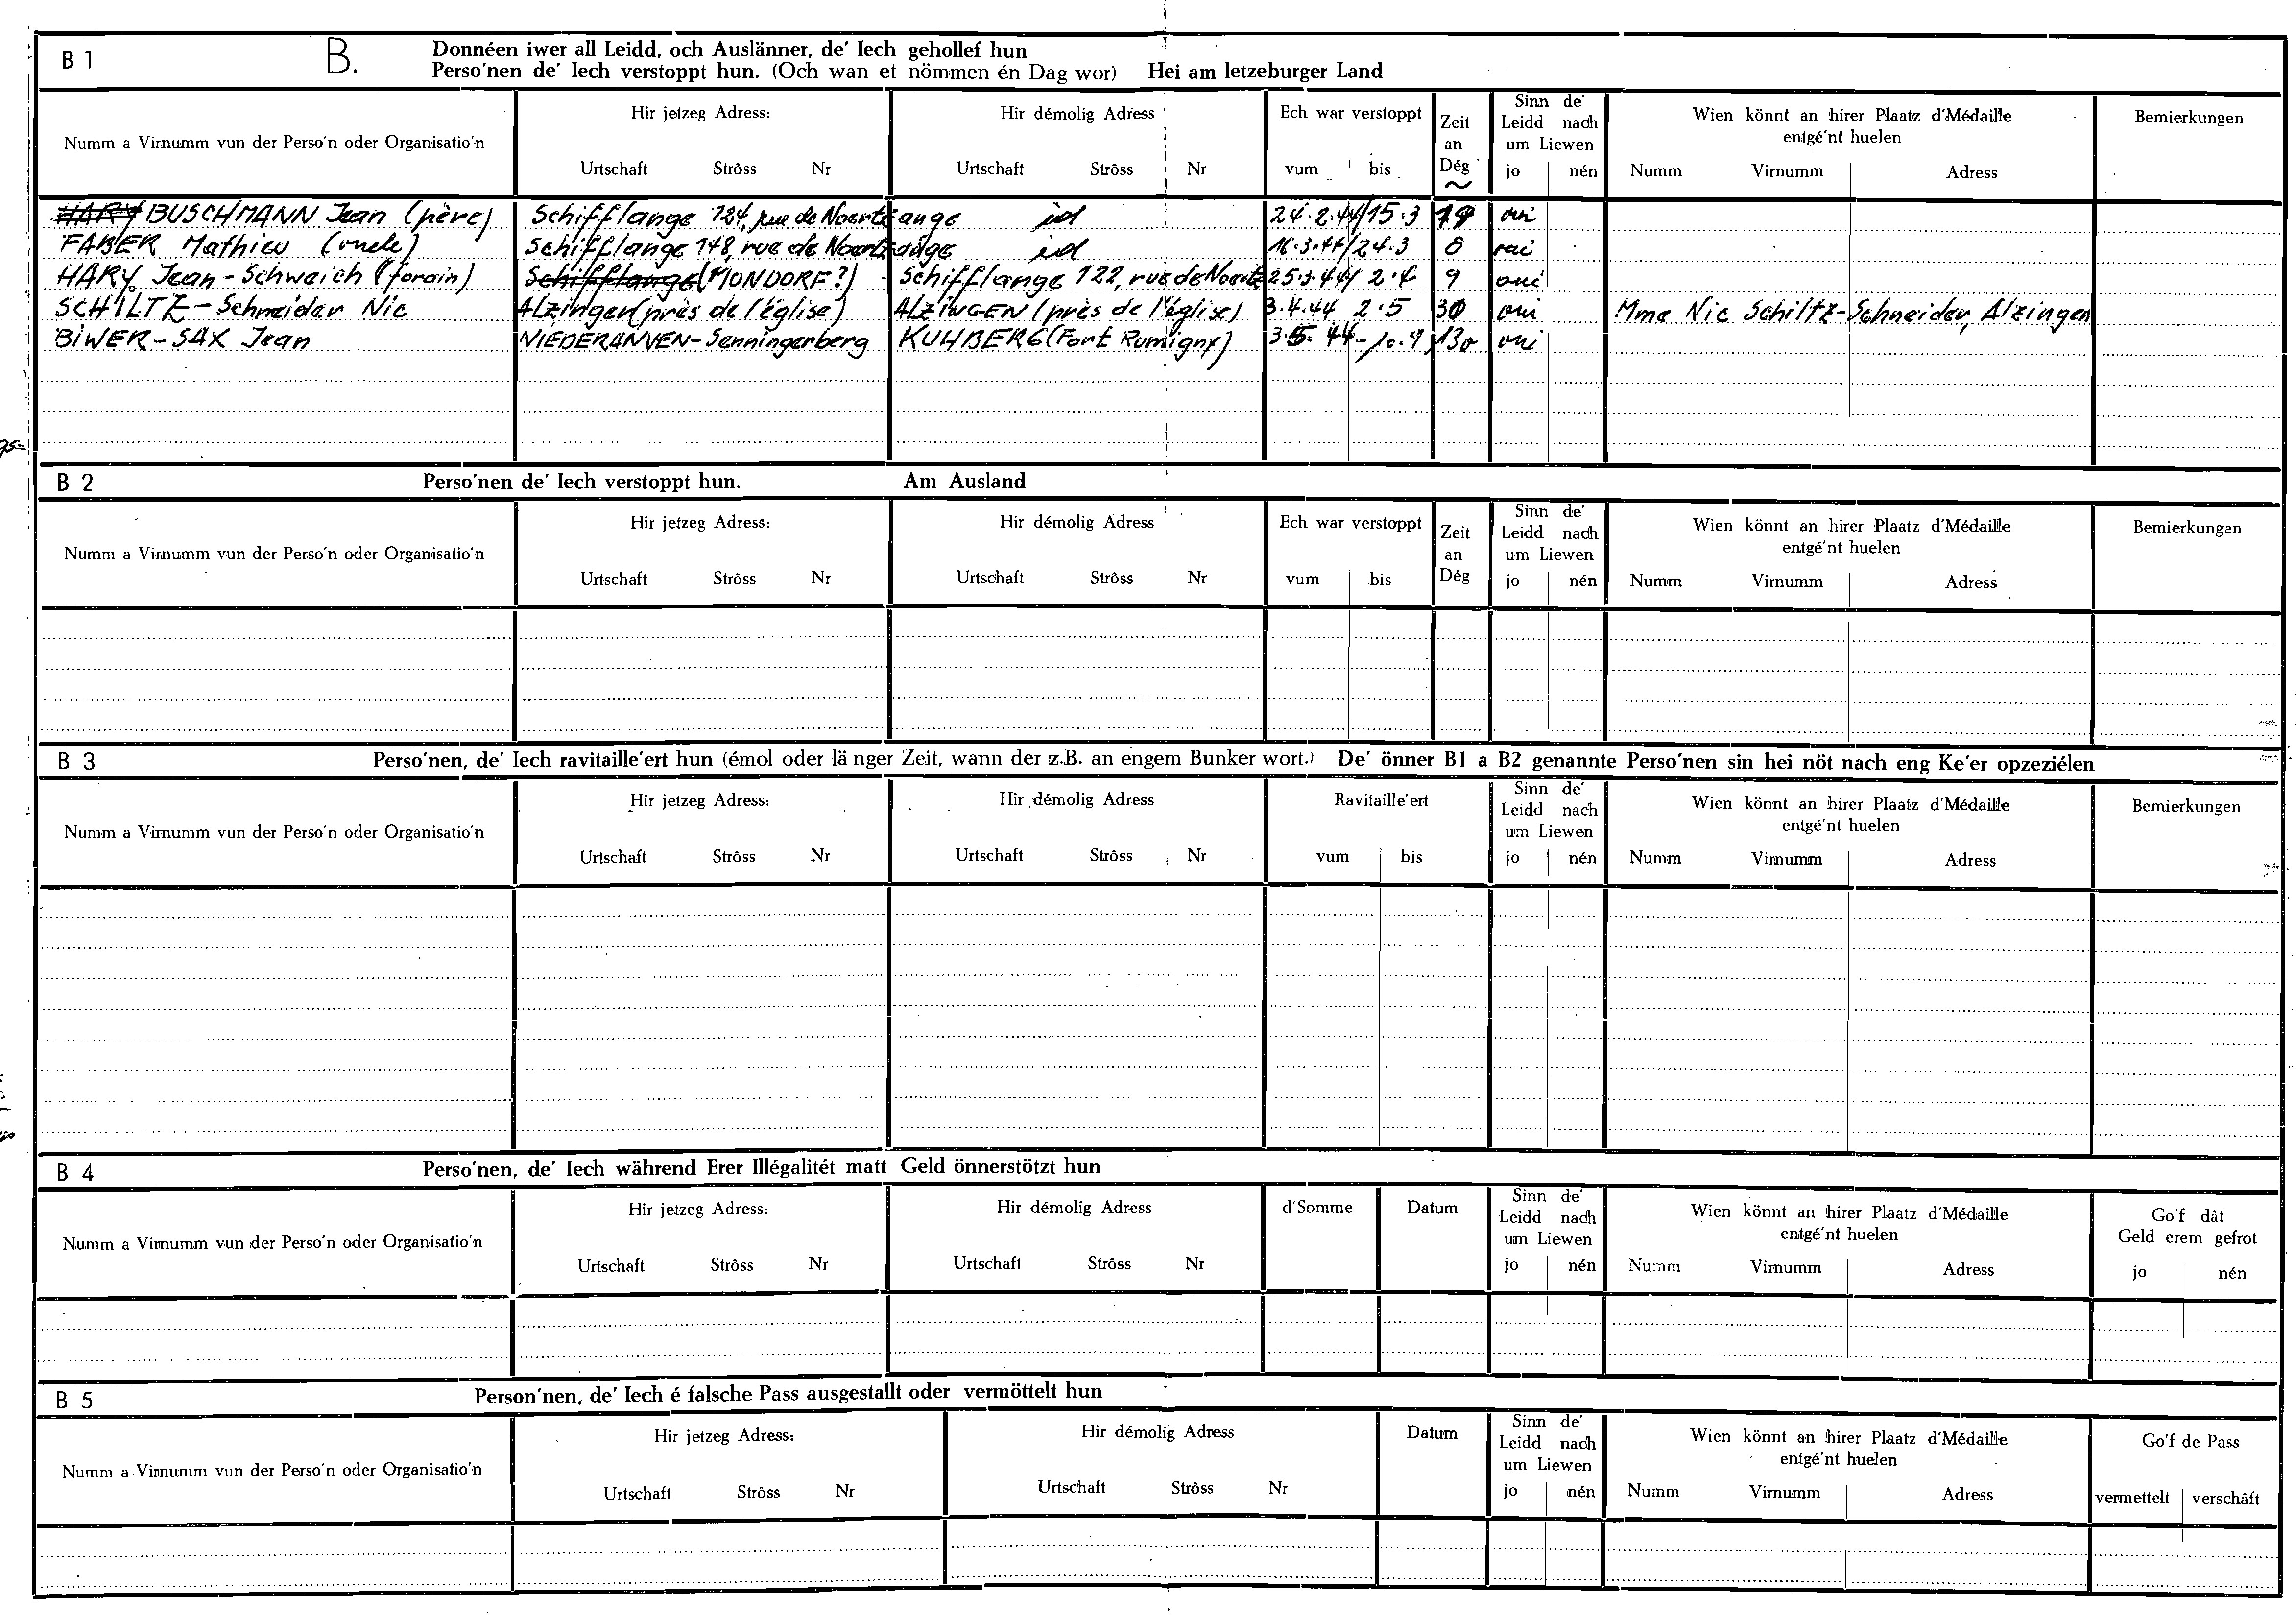 B 1 B. Donnéen iwer all Leidd, och Auslänner, de' Iech gehollef hun
Perso'nen de' Iech verstoppt hun. (Och wan et nömmen én Dag wor) Hei am letzeburger Land
Numm a Virnumm vun der Perso'n oder Organisatio'n
Hir jetzeg Adress:
Urtschaft Strôss Nr
Hir démolig Adress
Urtschaft Strôss Nr
Ech war verstoppt
vum bis
Zeit
an
Dég
Sinn de'
Leidd nach
um Liewen
jo nén
Wien könnt an hirer Plaatz d'Médaille
entgé'nt huelen
Numm Virnumm Adress
Bemierkungen
HARY BUSCHMANN Jean (père) Schifflange 124, rue de Noertzange id 24.2.44/15.3 19 oui
FABER Mathieu (oncle) Schifflange 148, rue de Noertzange id 16.3.44/24.3 8 oui
HARY Jean-Schweich (forain) Schifflange (MONDORF?) Schifflange 122, rue de Noertz 25.3.44/ 2.4 9 oui
SCHILTZ-Schneider Nic Alzingen (près de l'église) ALZINGEN (près de l'église) 3.4.44 2.5 30 oui Mme Nic Schiltz-Schneider, Alzingen
BIWER-SAX Jean NIEDERANVEN-Senningerberg KUHBERG (Fort Rumigny) 3.5.44-10.9 130 oui
B 2 Perso'nen de' Iech verstoppt hun. Am Ausland
Numm a Virnumm vun der Perso'n oder Organisatio'n
Hir jetzeg Adress:
Urtschaft Strôss Nr
Hir démolig Adress
Urtschaft Strôss Nr
Ech war verstoppt
vum bis
Zeit
an
Dég
Sinn de'
Leidd nach
um Liewen
jo nén
Wien könnt an hirer Plaatz d'Médaille
entgé'nt huelen
Numm Virnumm Adress
Bemierkungen
B 3 Perso'nen, de' Iech ravitaille'ert hun (émol oder länger Zeit, wann der z.B. an engem Bunker wort.) De' önner B1 a B2 genannte Perso'nen sin hei nöt nach eng Ke'er opzeziélen
Numm a Virnumm vun der Perso'n oder Organisatio'n
Hir jetzeg Adress:
Urtschaft Strôss Nr
Hir démolig Adress
Urtschaft Strôss Nr
Ravitaille'ert
vum bis
Sinn de'
Leidd nach
um Liewen
jo nén
Wien könnt an hirer Plaatz d'Médaille
entgé'nt huelen
Numm Virnumm Adress
Bemierkungen
B 4 Perso'nen, de' Iech während Erer Illégalitét matt Geld önnerstötzt hun
Numm a Virnumm vun der Perso'n oder Organisatio'n
Hir jetzeg Adress:
Urtschaft Strôss Nr
Hir démolig Adress
Urtschaft Strôss Nr
d'Somme
Datum
Sinn de'
Leidd nach
um Liewen
jo nén
Wien könnt an hirer Plaatz d'Médaille
entgé'nt huelen
Numm Virnumm Adress
Go'f dât
Geld erem gefrot
jo nén
B 5 Person'nen, de' Iech é falsche Pass ausgestallt oder vermöttelt hun
Numm a Virnumm vun der Perso'n oder Organisatio'n
Hir jetzeg Adress:
Urtschaft Strôss Nr
Hir démolig Adress
Urtschaft Strôss Nr
Datum
Sinn de'
Leidd nach
um Liewen
jo nén
Wien könnt an hirer Plaatz d'Médaille
entgé'nt huelen
Numm Virnumm Adress
Go'f de Pass
vermettelt verschâft